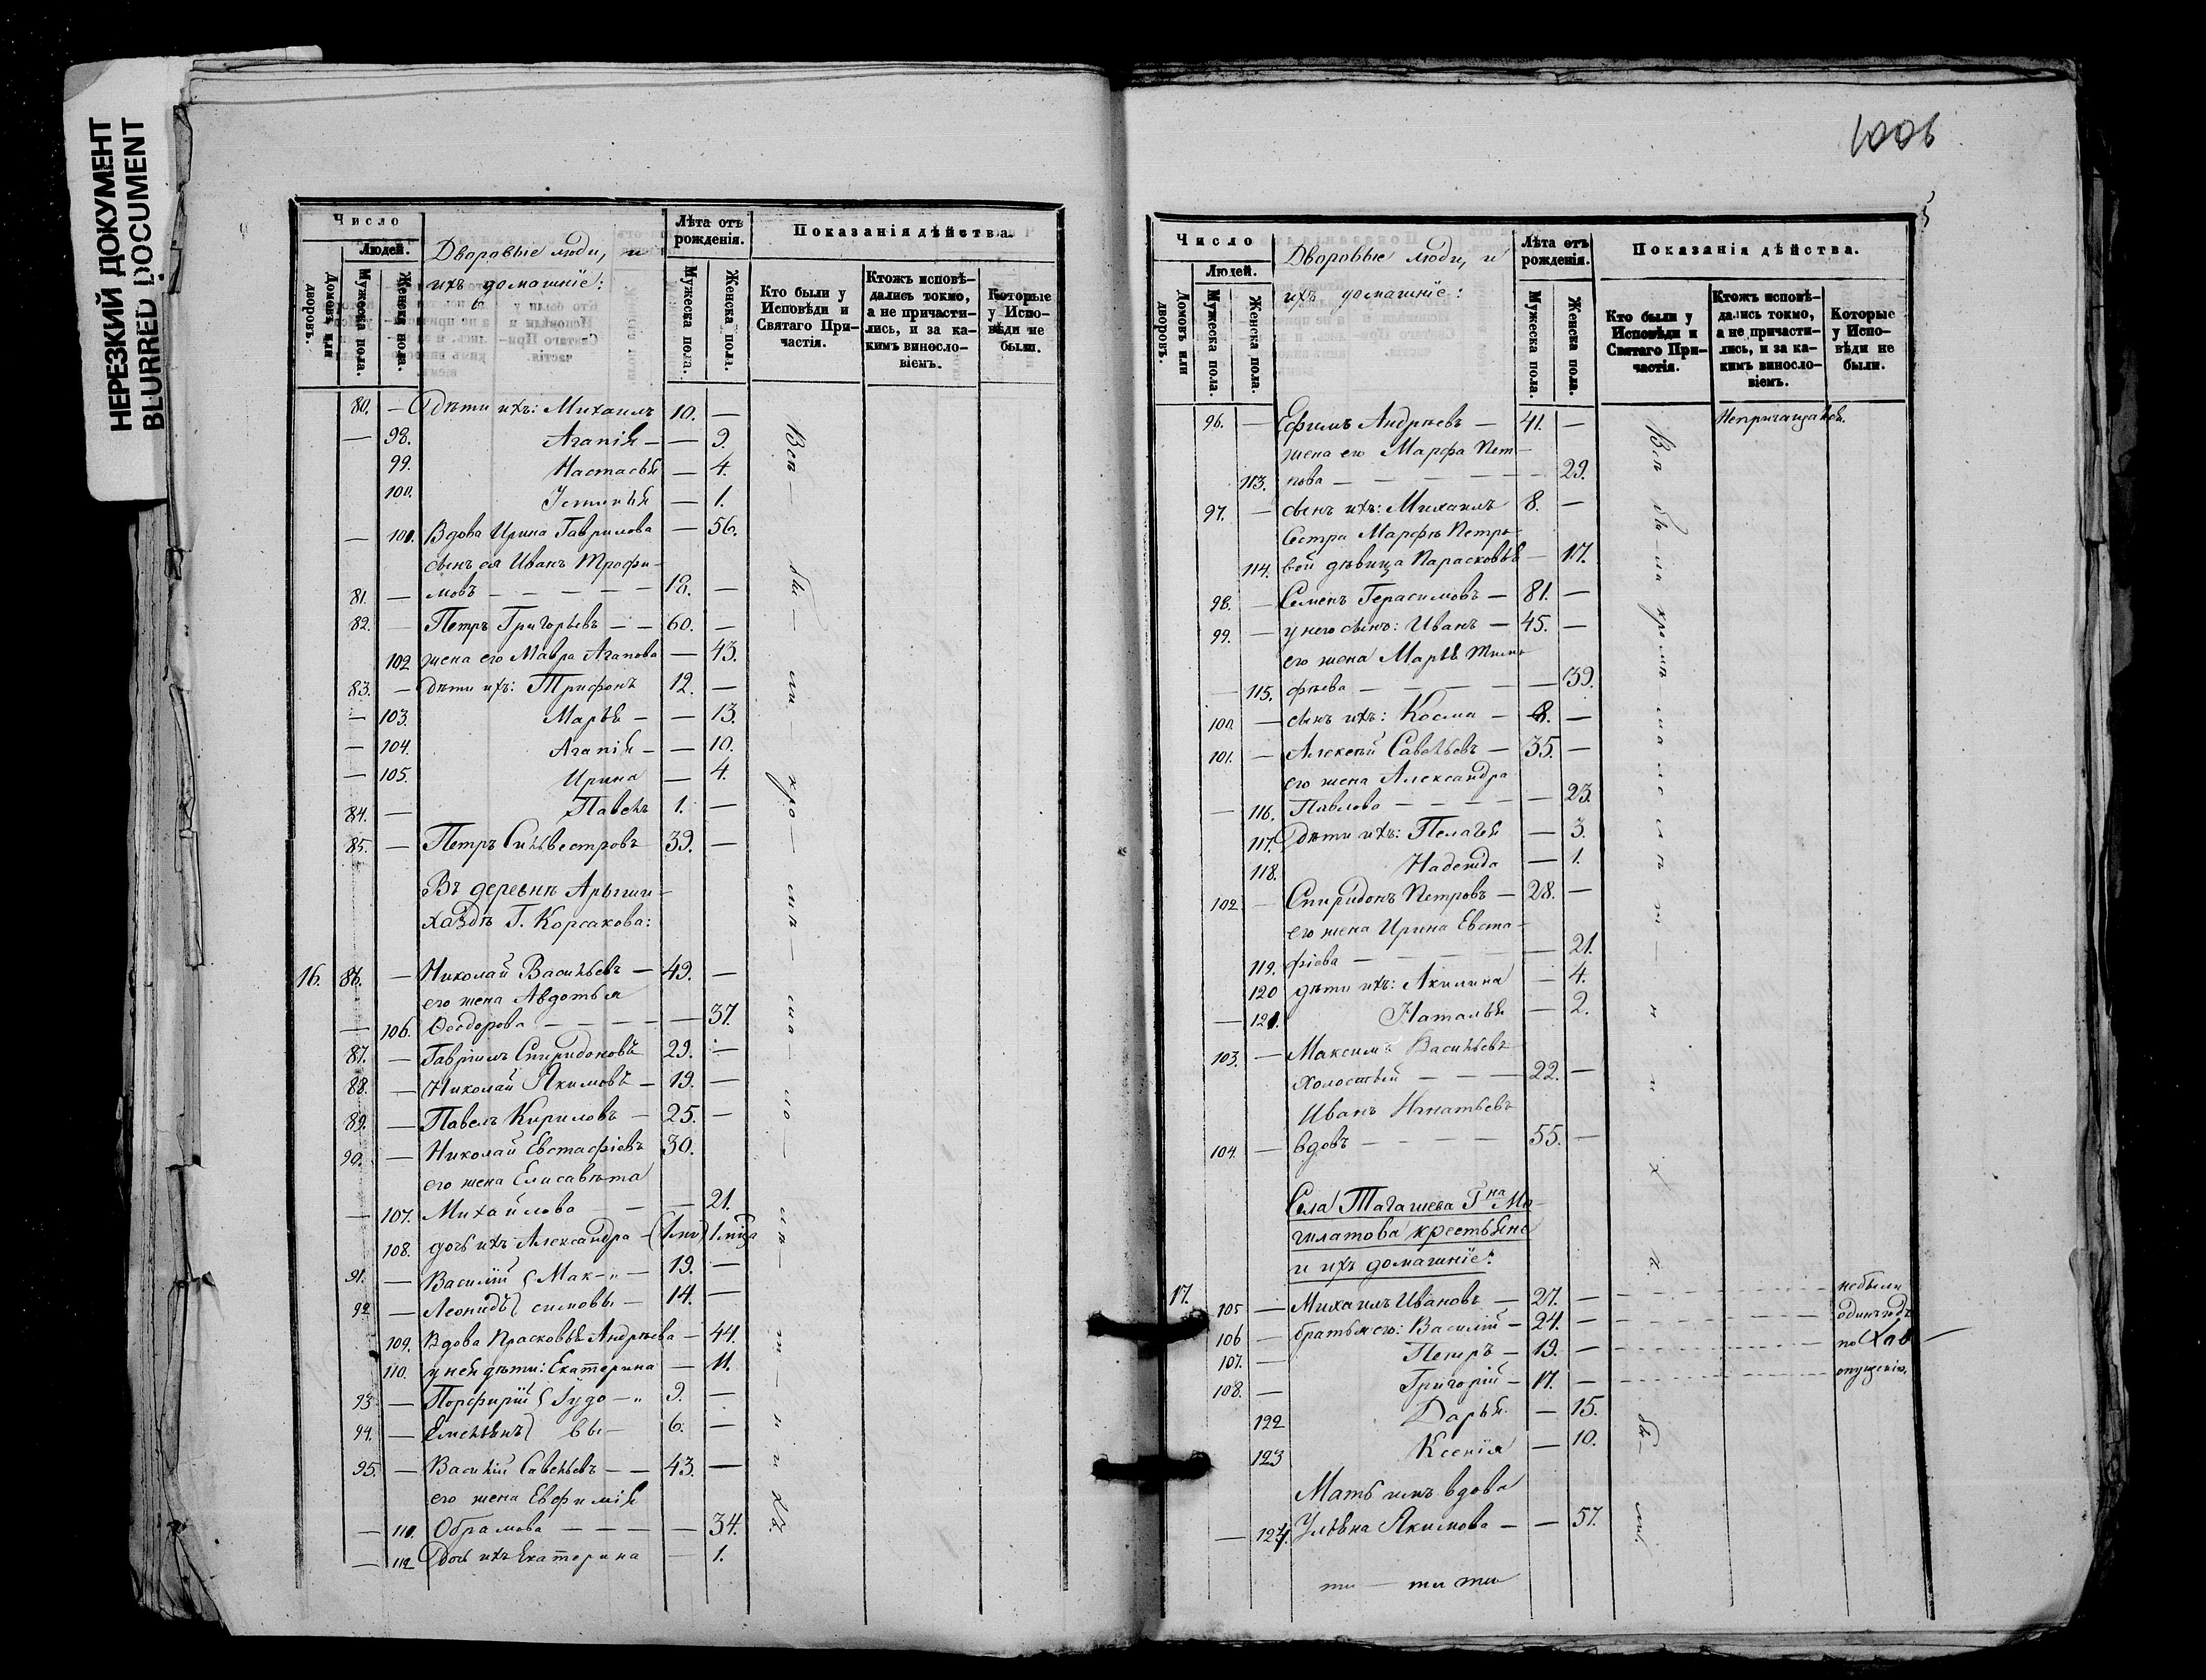 НЕРЕЗКИЙ ДОКУМЕНТ
BLURRED DOCUMENT
Число
Людей.
Домовъ или дворовъ.
Мужеска пола.
Женска пола.
Дворовые люди, и
ихъ домашніе:
Лѣта отъ рожденія.
Мужеска пола.
Женска пола.
Показанія дѣйства.
Кто были у Исповѣди и Святаго Причастія.
Ктожъ исповѣдались токмо, а не причастились, и за какимъ винословіемъ.
Которые у Исповѣди не были.
80. — Дѣти ихъ: Михаилъ 10. —
— 98. Агапія — — 9.
99. Настасья — 4.
100. Устинья — 1.
— 101. Вдова Ирина Гаврилова — 56.
сынъ ея Иванъ Трофи-
81. — мовъ — — — — — 18. —
82. — Петръ Григорьевъ — — 60. —
102 жена его Мавра Агапова — 43.
83. — Дѣти ихъ: Трифонъ 12. —
— 103. Марья — — 13.
— 104. Агапія — — 10.
— 105. Ирина — 4.
84. — Павелъ 1. —
85. — Петръ Сильвестровъ 39. —
Въ деревнѣ
Г. Корсакова:
16. 86. — Николай Васильевъ — 49. —
его жена Авдотья
— 106. Ѳеодорова — — — — — 37.
87. — Гавріилъ Спиридоновъ 29. —
88. — Николай Якимовъ — 19. —
89. — Павелъ Кириловъ — 25. —
90. — Николай Евстафіевъ 30.
его жена Елисавѣта
— 107. Михайлова — — 21.
108. дочь ихъ Александра
91. — Василій Мак- — 19. —
92 — Леонидъ симовы — 14. —
109. Вдова Прасковья Андрѣева — 44.
110. у ней дѣти: Екатерина — 11.
93 — Порфирій 9. —
94. — Емельянъ вы — 6. —
95. — Василій Савельевъ — — 43. —
его жена Евфимія
— 111. Обрамова — — — — 34.
— 112 Дочь ихъ Екатерина — 1.
Всѣ — бы — ли — кро — мѣ — ма — ло — лѣ — т — нихъ.
Число
Людей.
Домовъ или дворовъ.
Мужеска пола.
Женска пола.
Дворовые люди, и
ихъ домашніе:
Лѣта отъ рожденія.
Мужеска пола.
Женска пола.
Показанія дѣйства.
Кто были у Исповѣди и Святаго Причастія.
Ктожъ исповѣдались токмо, а не причастились, и за какимъ винословіемъ.
Которые у Исповѣди не были.
96. — Ефимъ Андрѣевъ — 41. —
жена его Марфа Пет-
113. рова — — — — — — 29.
97. — сынъ ихъ: Михаилъ 8. —
Сестра Марфѣ Петро-
114. вой дѣвица Парасковья — 17.
98. — Семенъ Герасимовъ — 81. —
99. — у него сынъ: Иванъ — 45. —
его жена Марья Тимо-
— 115. фѣева — — — — — 39.
100. — сынъ ихъ: Косма — 8. —
101. — Алексѣй Савельевъ — 35. —
его жена Александра
— 116. Павлова — — — — — 23.
117. Дѣти ихъ: Пелагея — 3.
118. Надежда — 1.
102 — Спиридонъ Петровъ — 28. —
его жена Ирина Евста-
119. фіева — — — — — 21.
120 дѣти ихъ: Акилина — 4.
— 121. Наталья — 2.
103. — Максимъ Васильевъ
холостый — — — 22. —
Иванъ Игнатьевъ
104. — вдовъ — — — — — 55. —
Всѣ были кромѣ малолѣт — нихъ.
Села Тагашева Гна
крестьяне
и ихъ домашніе:
17. 105 — Михаилъ Ивановъ — 27. — небыли
106 — братья его: Василій — 24. —
107. — Петръ — 19. — по
108. — Григорій — 17. — опущенію.
122 Дарья — 15.
123 Ксенія — 10.
Мать имъ вдова
— 124. Ульяна Якимова — — 57.
бы — ли.